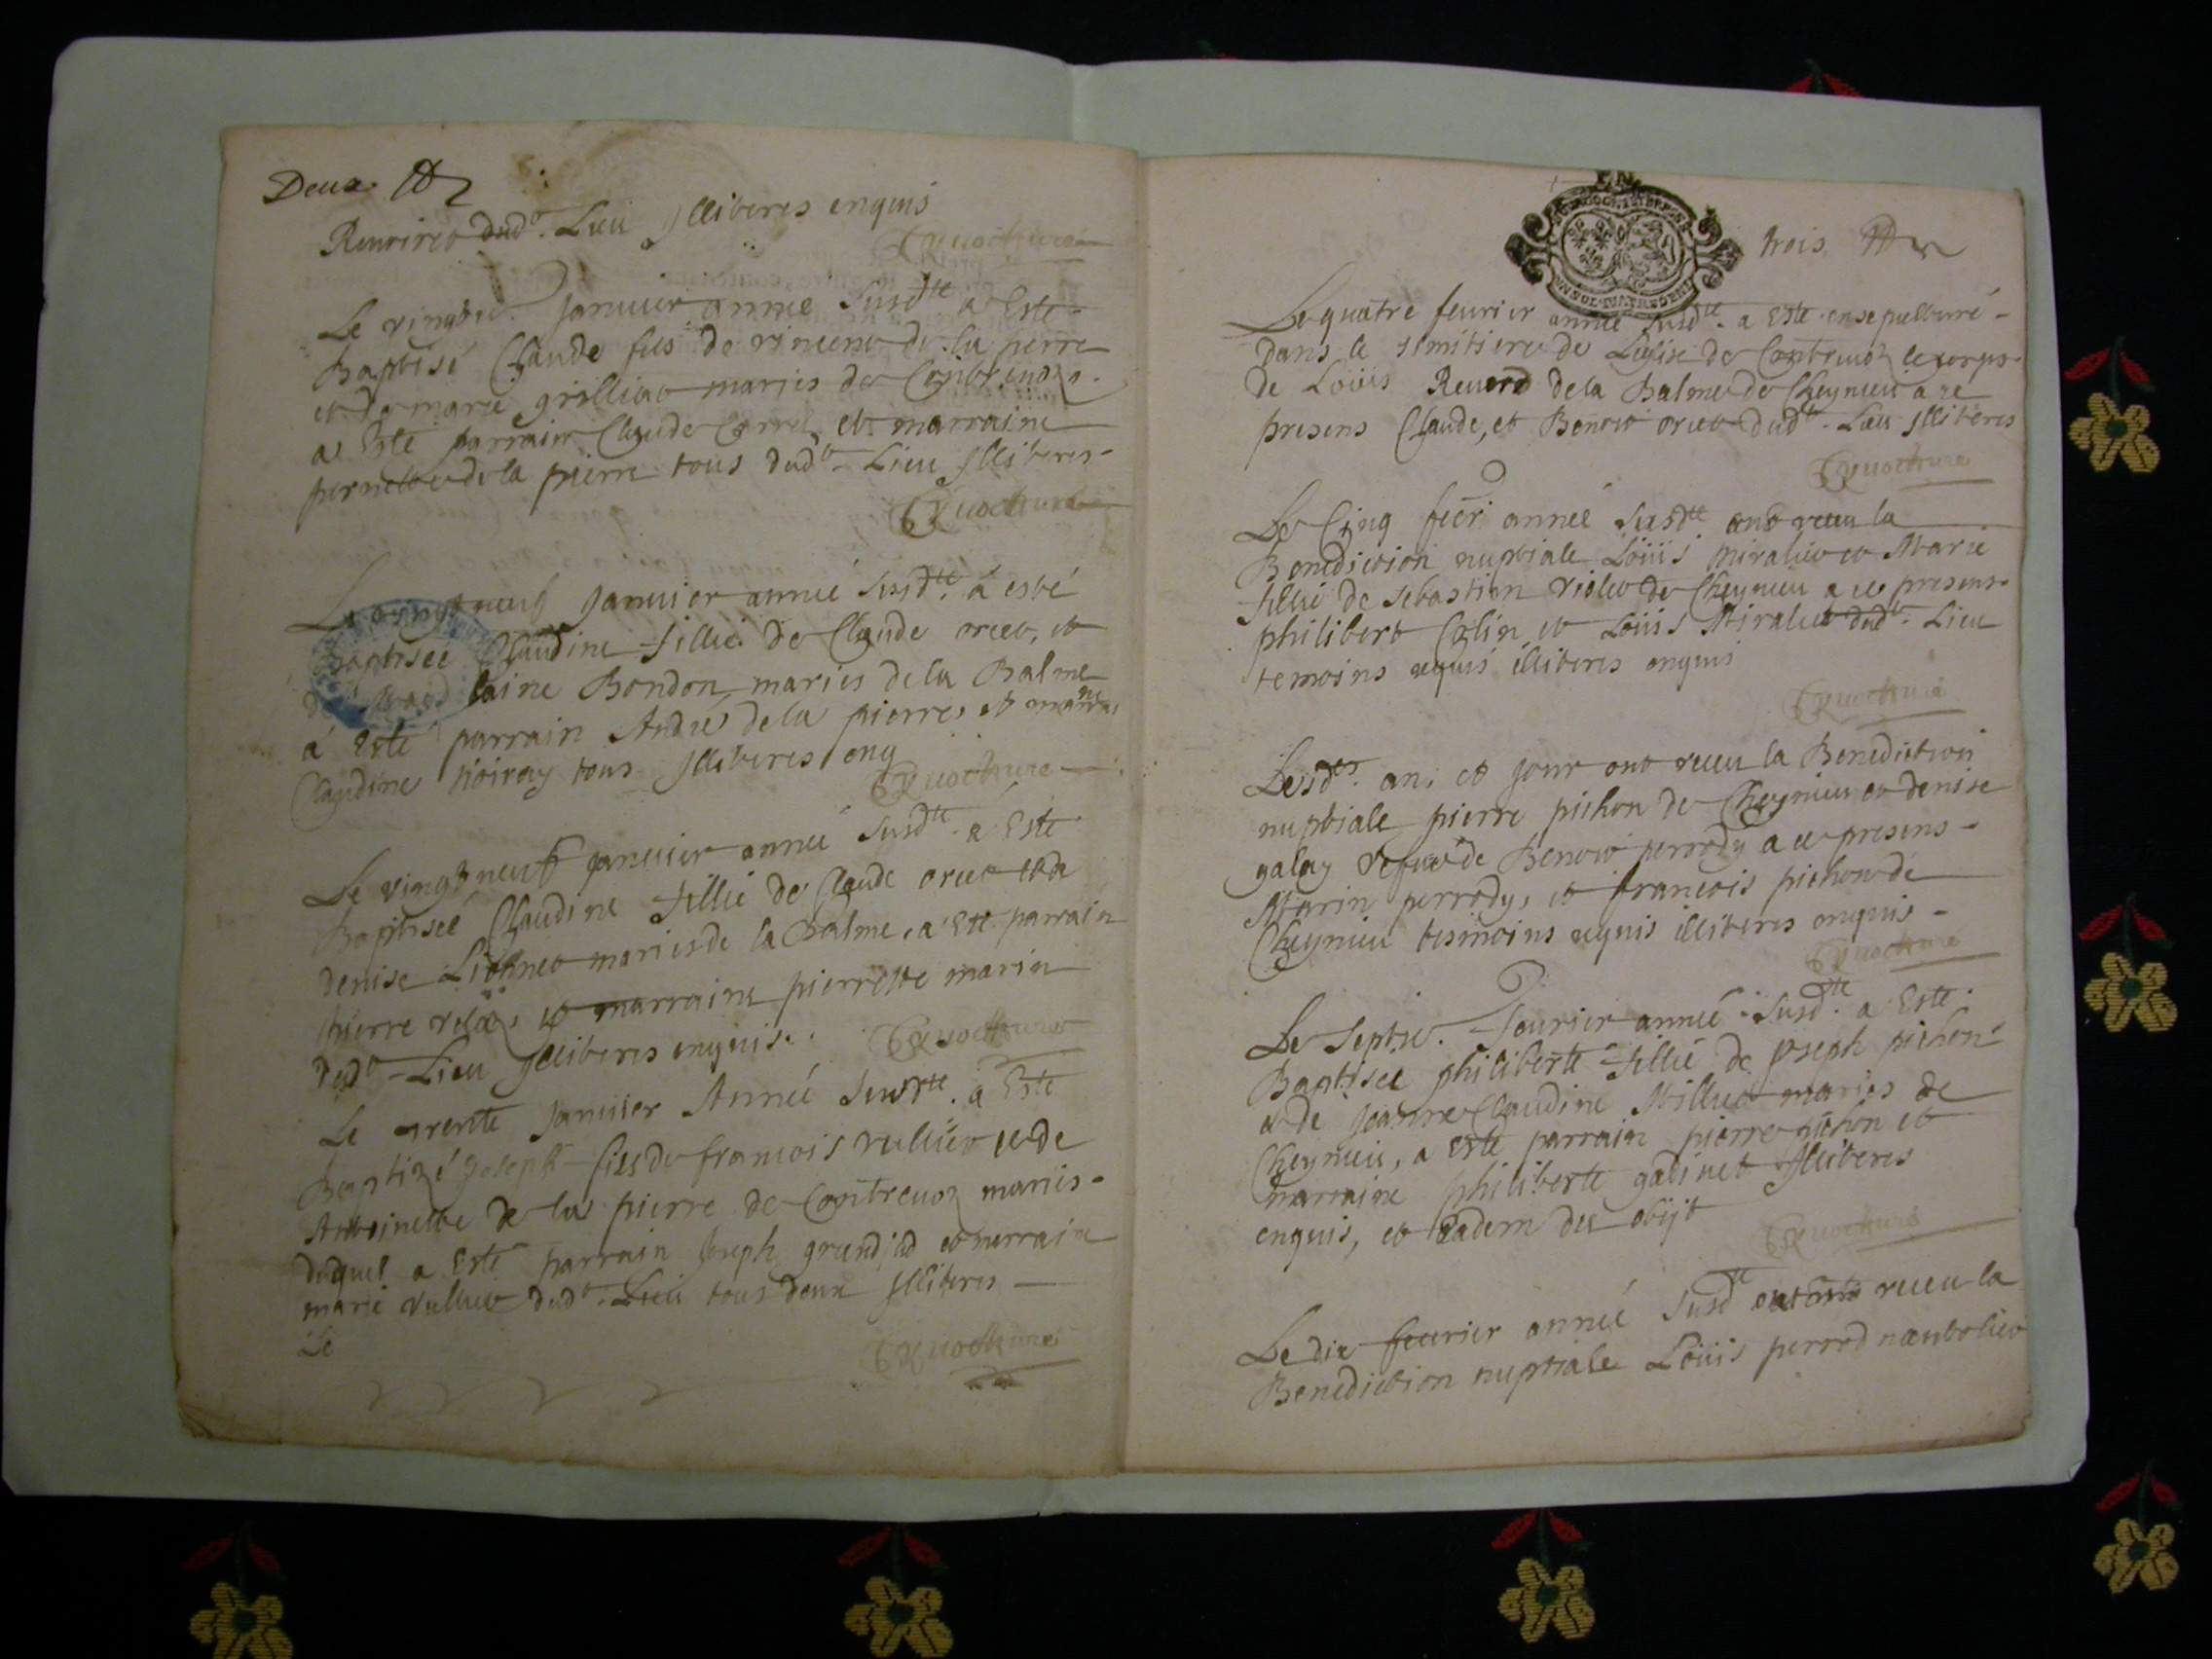 Deux
dud.t Lieu Jlliteres enquis
Le janvier année susd.tte a Esté
Baptisé Claude fils de vincent de la pierre
et de marie grilliat maries de Contrevoz
a Esté parrain Claude et marraine
pernette de la pierre tous dud.t Lieu Jlliteres
Le vingt neuf Januier année susd.tte á esté
baptiseé Claudine fillié de Claude orcet, et
de Magdelaine Bondon maries de la Balme
á Esté parrain André de la pierre, et marraine
Claudine noiray tous Jlliteres enq
Le vingt neuf januier année susd.tte a Esté
Baptiseé Claudine fillié de Claude orcet et de
denise mariés de la Balme, a Esté parrain
pierre et marraine pierrette marin
dud.t Lieu Jlliteres enquis.
Le trente Januier Année Susd.tte a Esté
Baptizé Joseph fils de francois rulliet et de
Antoinette de la pierre de Contrevoz mariés
duquel a Esté parrain Joseph grandjed et marraine
marie rulliet dud.t Lieu tous deux Jlliteres
Le
trois
Le quatre feurier année susd.tte a Esté ensepulturé
dans le simitiere de Leglise de Contrevoz le corps
de Loüis Reverd de la Balme de Cheynieu a ce
presens Claude, et Benoit orcet dud.t Lieu Jlliteres
Le Cinq feür. année susd.tte ont receu la
Benediction nuptiale Loüis miraliet et Marie
fillié de sebastien violet de Cheynieu a ce presens
philibert Colin et Loüis Miraliet dud.t Lieu
temoins requis illiteres enquis
Lesd.es an, et jour ont receu la Benediction
nuptiale pierre pichon de Cheynieu et denise
galay vefue de Benoit perrody a ce presens
Marin perrody, et francois pichon de
Cheynieu tesmoins requis illiteres enquis
Le Septie. feurier année susd.tte a Esté
Baptiseé philiberte fillié de Joseph pichon
et de Jeanne Claudine Milliet maries de
Cheynieu, a Esté parrain pierre pichon et
marraine philiberte gadinet Jlliteres
enquis, et Eadem die obijt
Le dix feurier année susd.tte ont receu la
Benediction nuptiale Loüis perrod